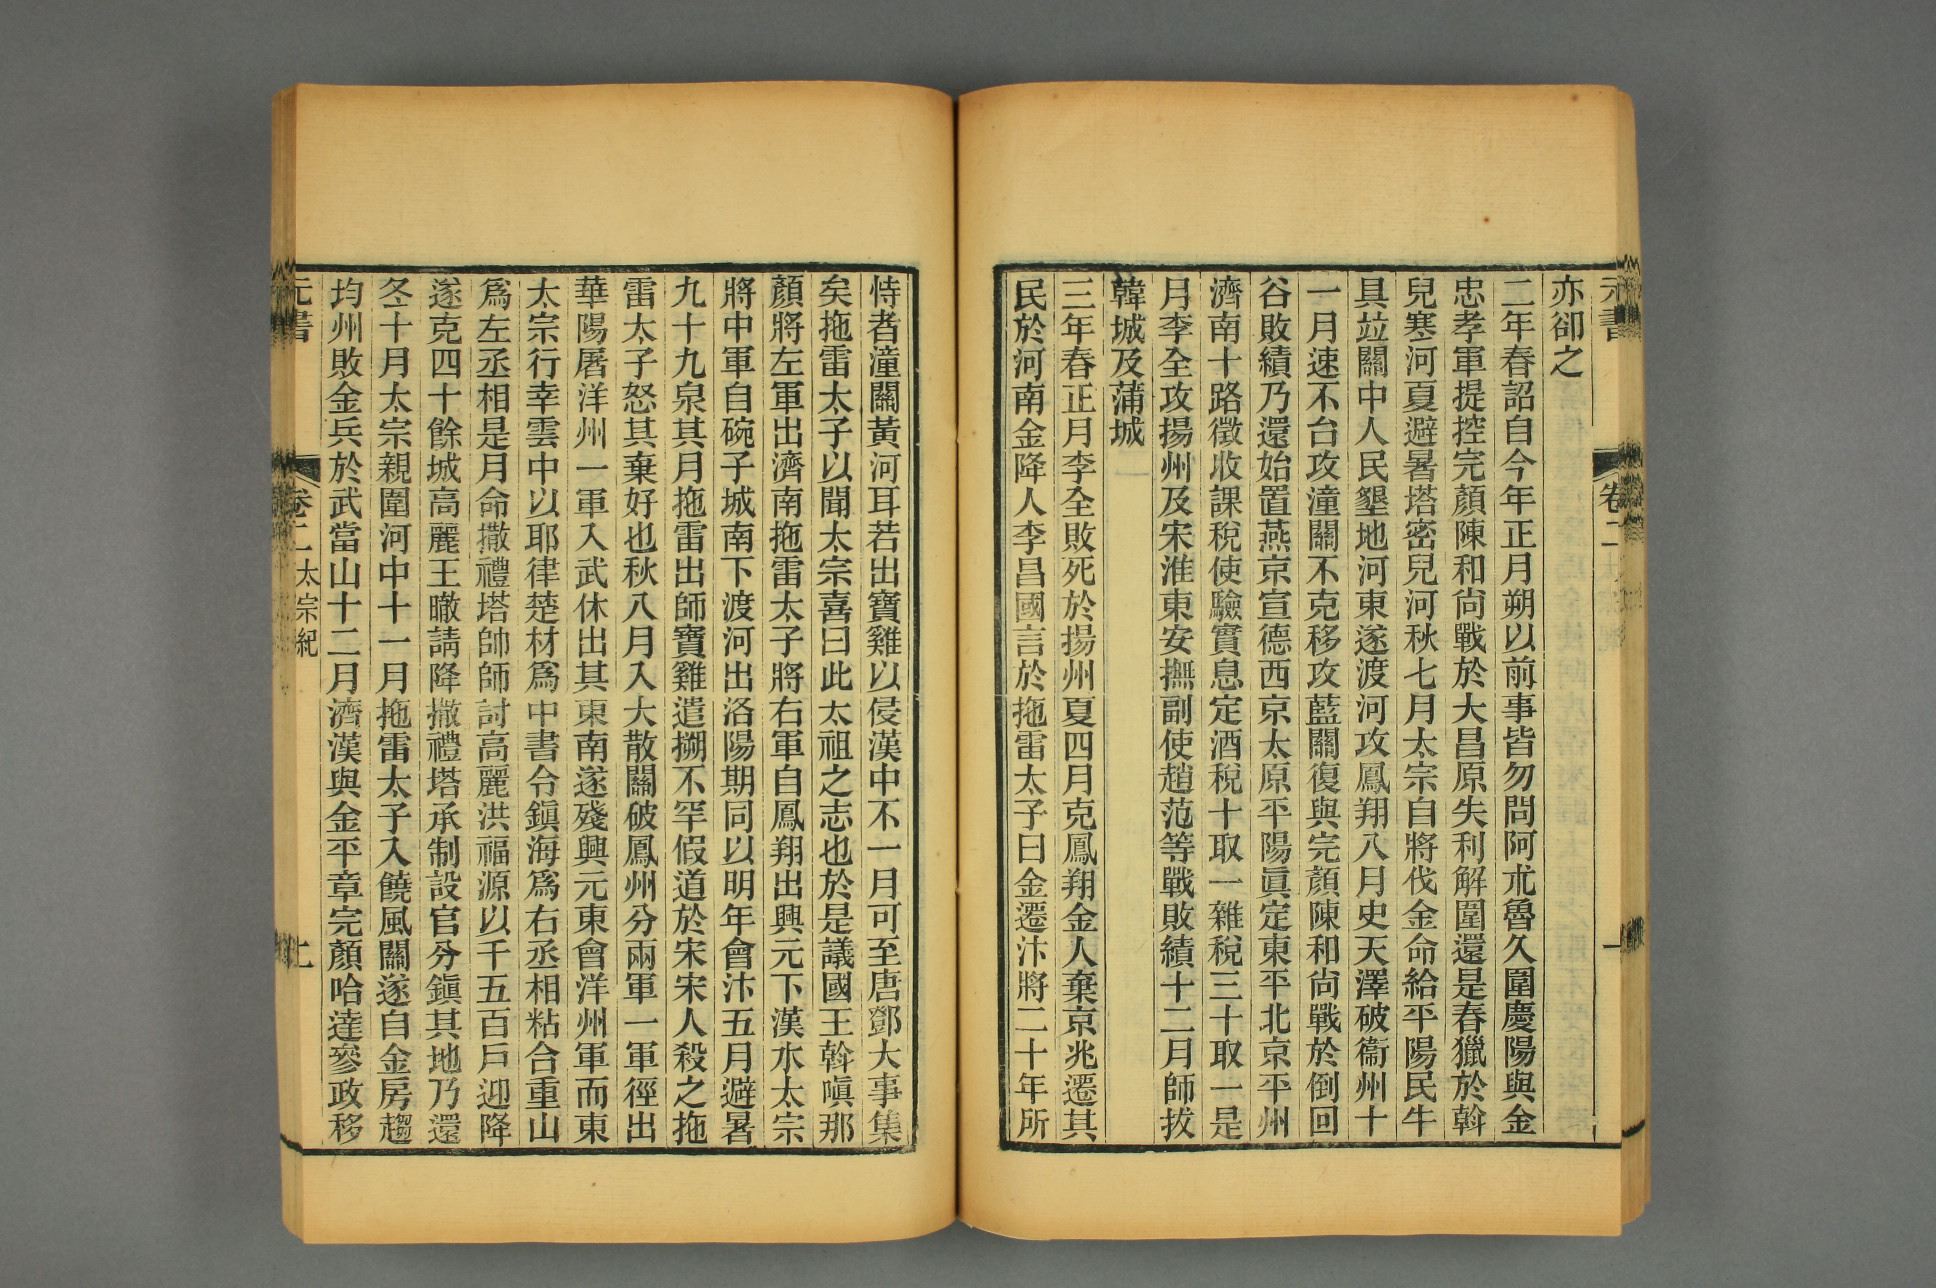 亦卻之
二年春詔自今年正月朔以前事皆勿問阿朮魯久圍慶陽與金
忠孝軍提控完顏陳和尙戰於大昌原失利解圍還是春獵於斡
兒寒河夏避暑塔密兒河秋七月太宗自將伐金命給平陽民牛
具竝關中人民墾地河東遂渡河攻鳳翔八月史天澤破衞州十
一月速不台攻潼關不克移攻藍關復與完顏陳和尙戰於倒回
谷敗績乃還始置燕京宣德西京太原平陽眞定東平北京平州
濟南十路徵收課稅使驗實息定酒稅十取一雜稅三十取一是
月李全攻揚州及宋淮東安撫副使趙范等戰敗績十二月師拔
韓城及蒲城
三年春正月李全敗死於揚州夏四月克鳳翔金人棄京兆遷其
民於河南金降人李昌國言於拖雷太子曰金遷汴將二十年所
恃者潼關黃河耳若出寶雞以侵漢中不一月可至唐鄧大事集
矣拖雷太子以聞太宗喜曰此太祖之志也於是議國王斡嗔那
顏將左軍出濟南拖雷太子將右軍自鳳翔出興元下漢水太宗
將中軍自碗子城南下渡河出洛陽期同以明年會汴五月避暑
九十九泉其月拖雷出師寶雞遣搠不罕假道於宋宋人殺之拖
雷太子怒其棄好也秋八月入大散關破鳳州分兩軍一軍徑出
華陽屠洋州一軍入武休出其東南遂殘興元東會洋州軍而東
太宗行幸雲中以耶律楚材爲中書令鎭海爲右丞相粘合重山
爲左丞相是月命撒禮塔帥師討高麗洪福源以千五百戶迎降
遂克四十餘城高麗王㬚請降撒禮塔承制設官分鎭其地乃還
冬十月太宗親圍河中十一月拖雷太子入饒風關遂自金房趨
均州敗金兵於武當山十二月濟漢與金平章完顏哈達參政移
元書
卷二 太宗紀